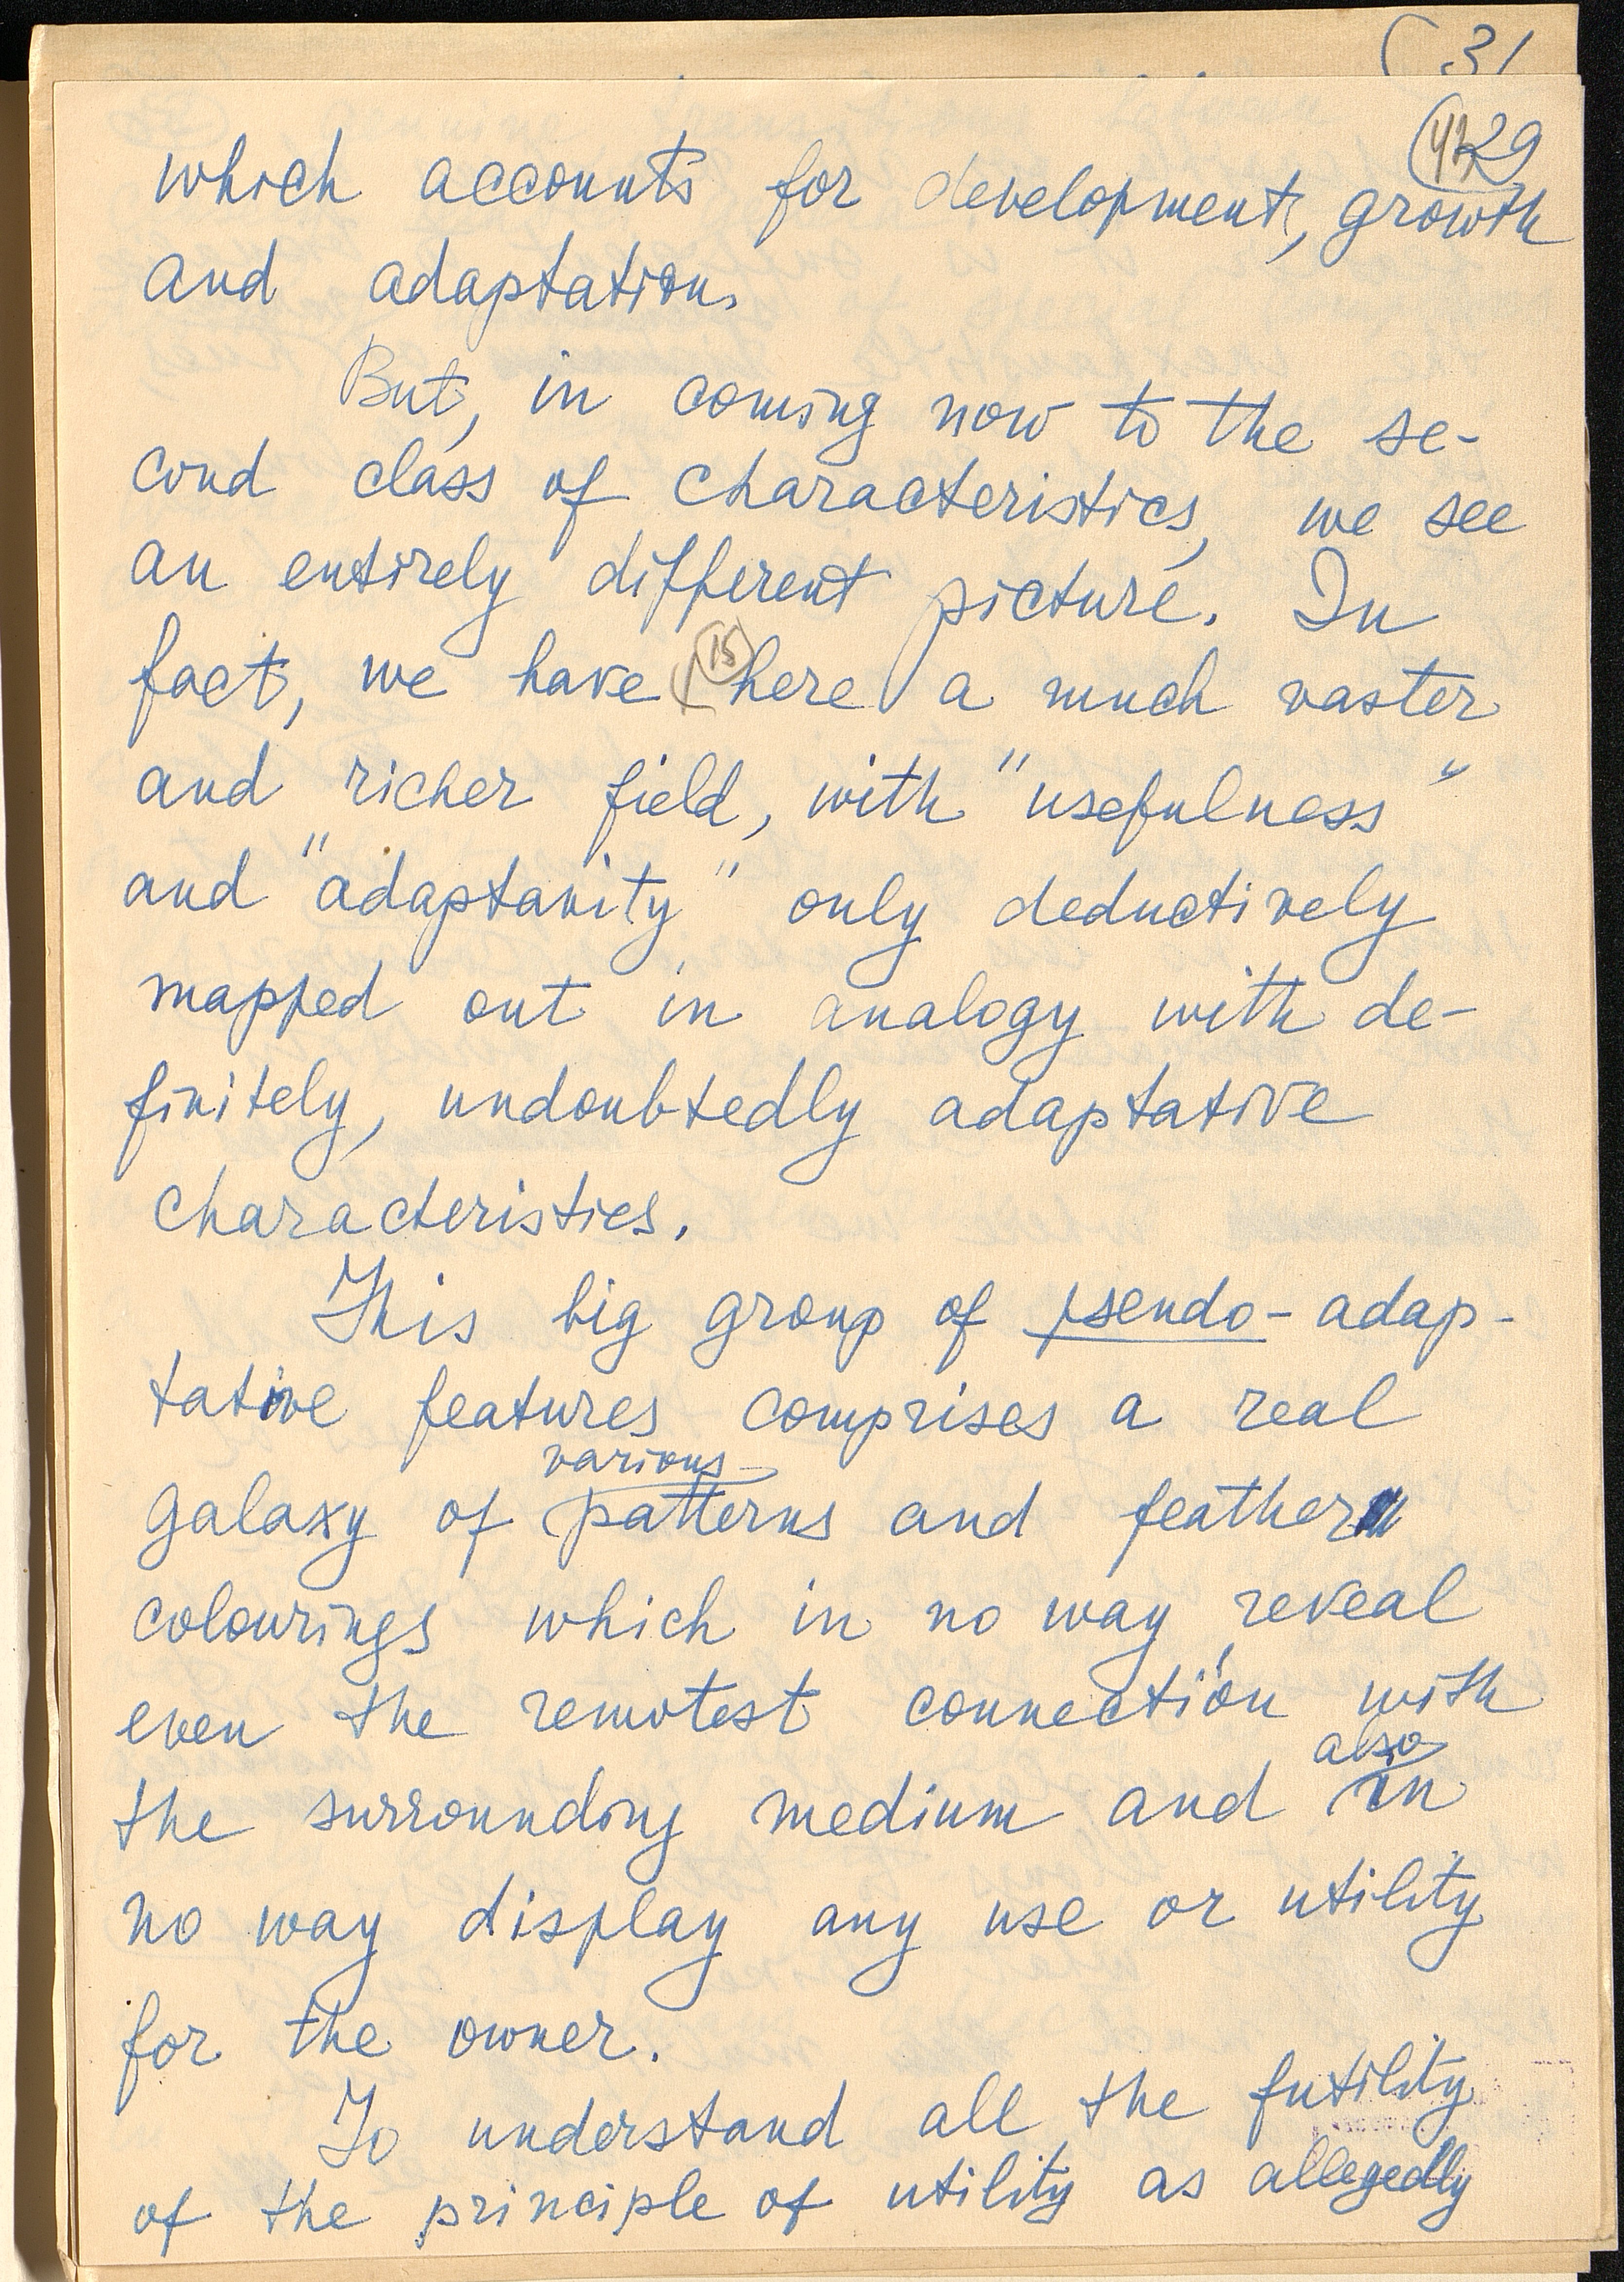 31
29
which accounts for development, growth
and adaptation.
But, in coming now to the se-
cond class of characteristics, we see
an entirely different picture. In
fact, we have 15 here a much vaster
and richer field, with "usefulness"
and "adaptavity" only deductively
mapped out in analogy with de-
finitely, undoubtedly adaptative
characteristics.
This big group of pseudo-adap-
tative features comprises a real
various
galaxy of patterns and feather
colourings which in no way reveal
even the remotest connection with
also
the surrounding medium and in
no way display any use or utility
for the owner.
To understand all the futility
of the principle of utility as allegedly